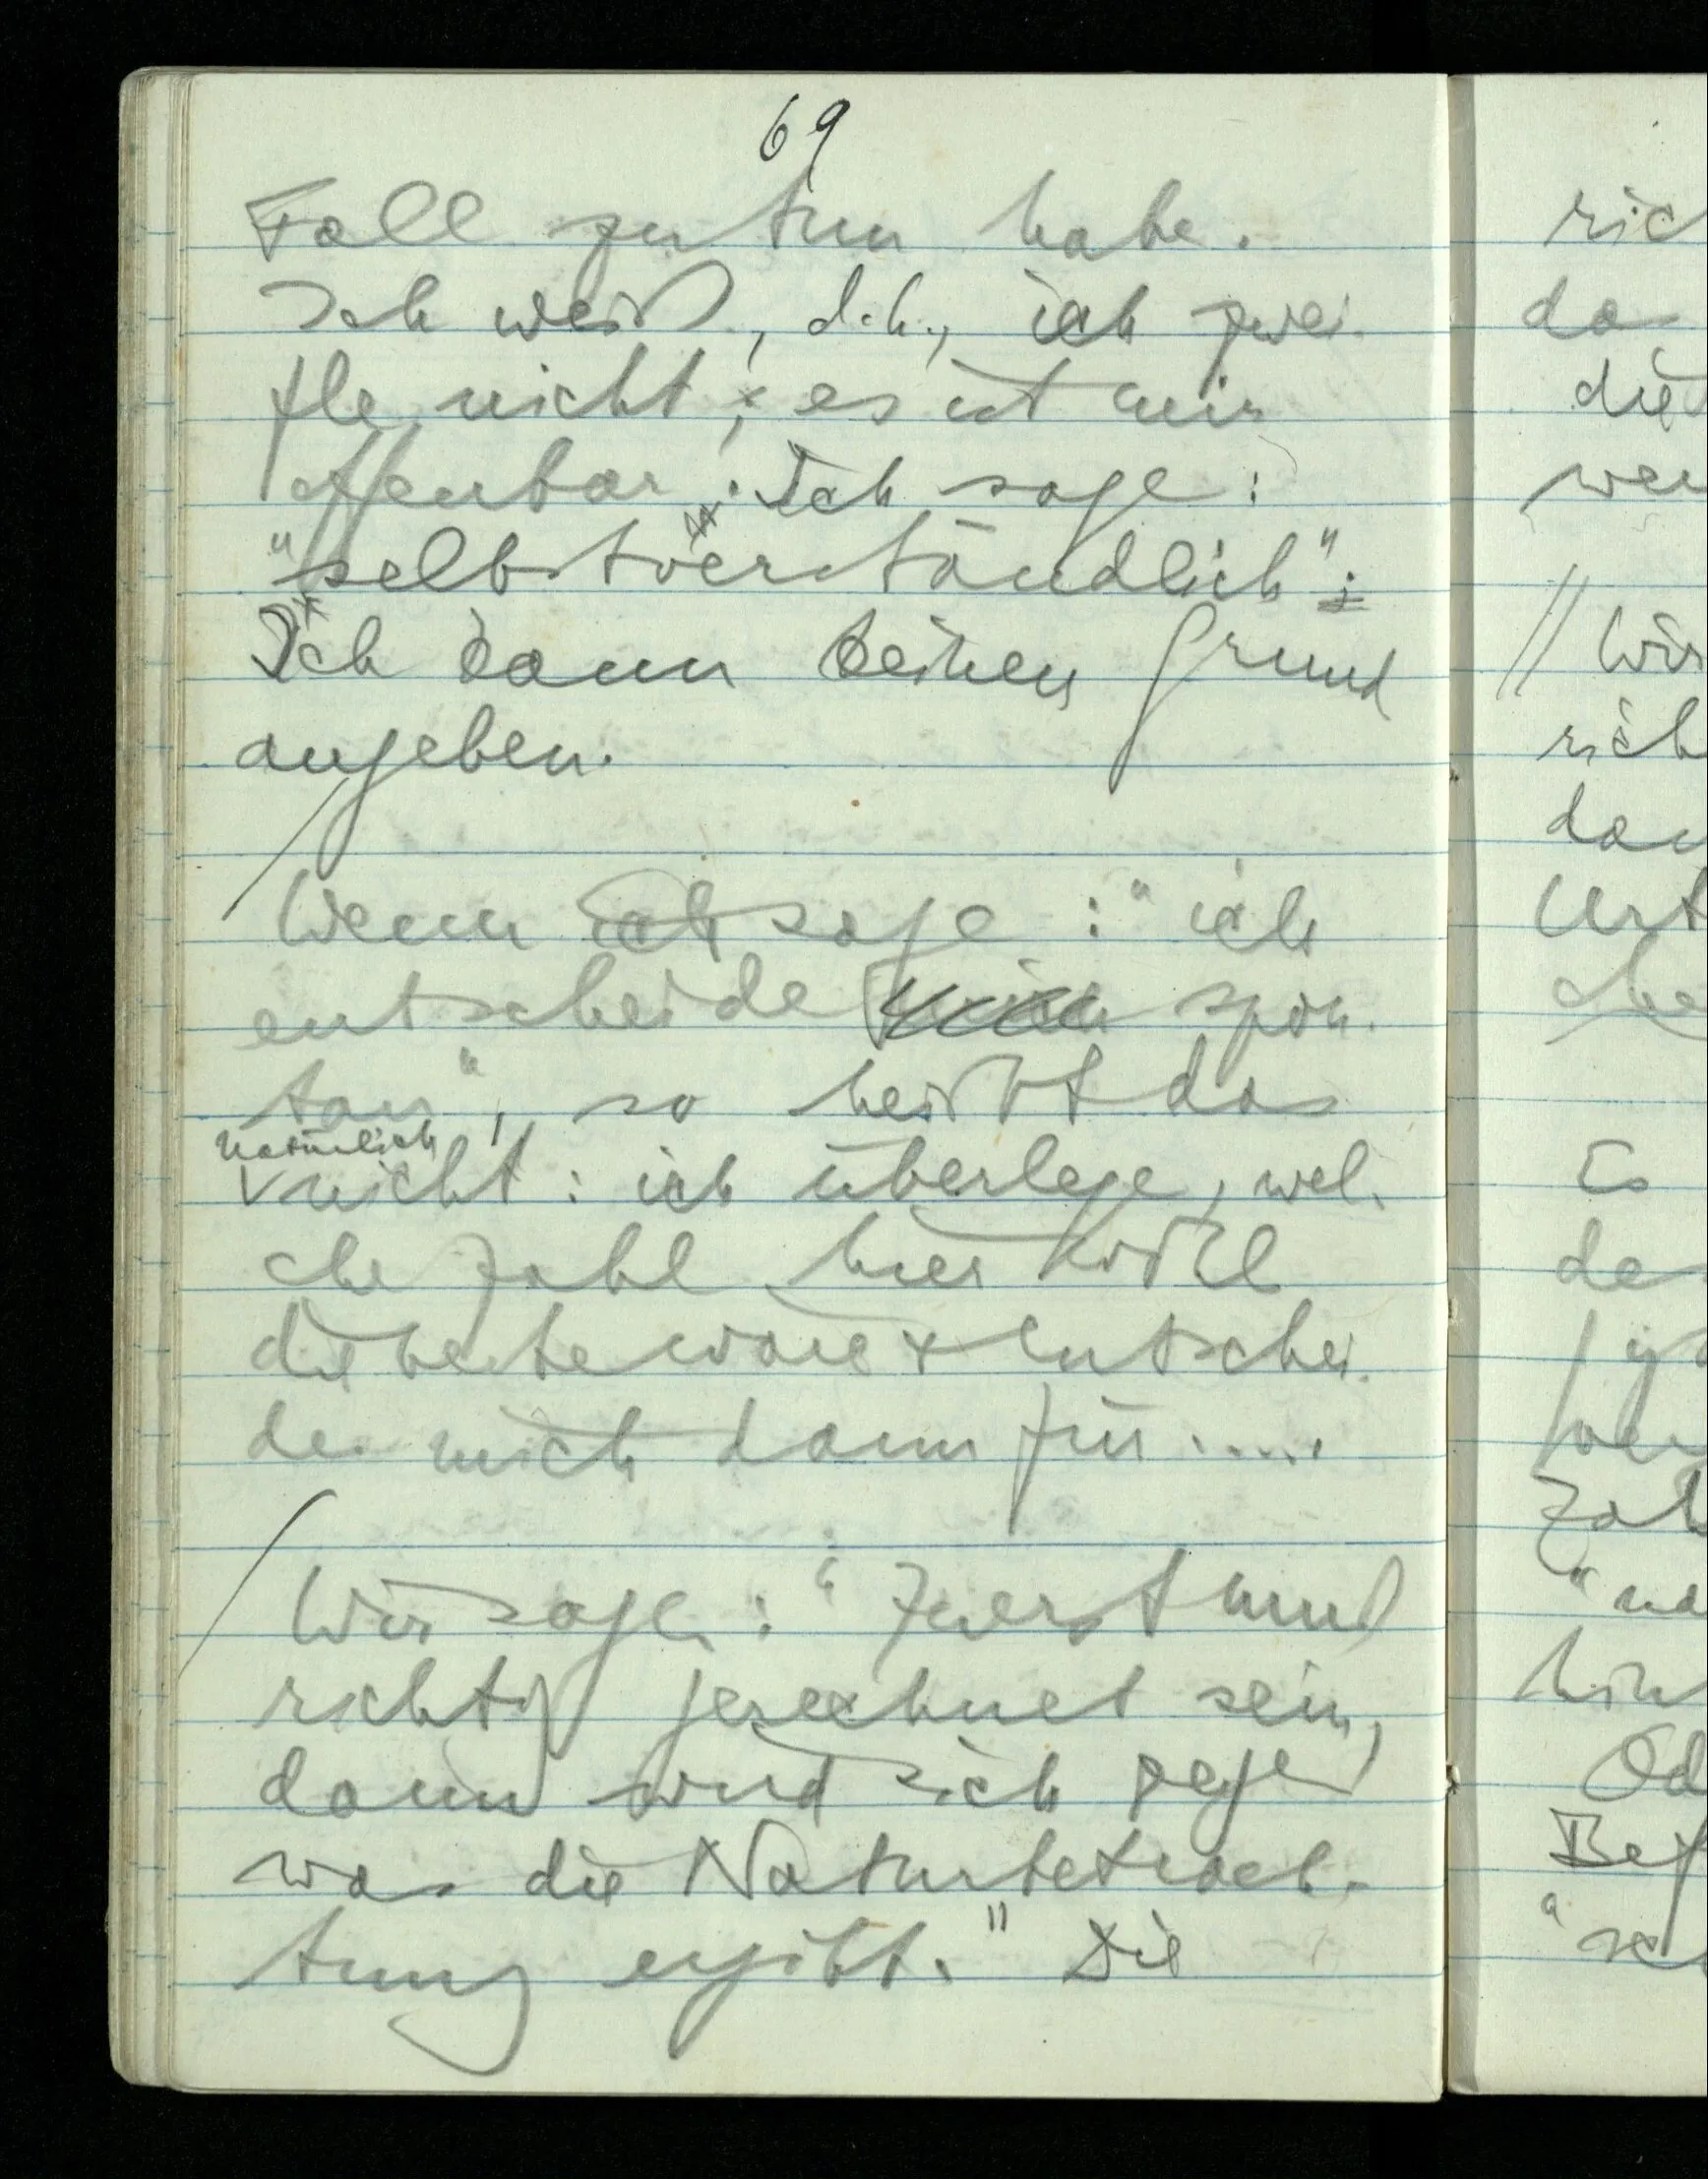 69
Fall zu tun habe.
Ich weiß, d.h., ich zwei-
fle nicht; es ist mir
offenbar. Ich sage:
"selbstverständlich";
Ich kann keinen Grund
angeben.
/ Wenn ich sage: "ich
entscheide spon-
tan", so heißt das
natürlich
nicht: ich überlege, wel-
che Zahl hier wohl
die beste wäre & entschei-
de mich dann für .....
/ Wir sagen: "Zuerst muß
richtig gerechnet sein,
dann wird sich zeigen
was die Naturbetrach-
tung ergibt." Die
ric
da
die
wer
// Wir
rich
dan
Urt
Es
de
Zah
Od